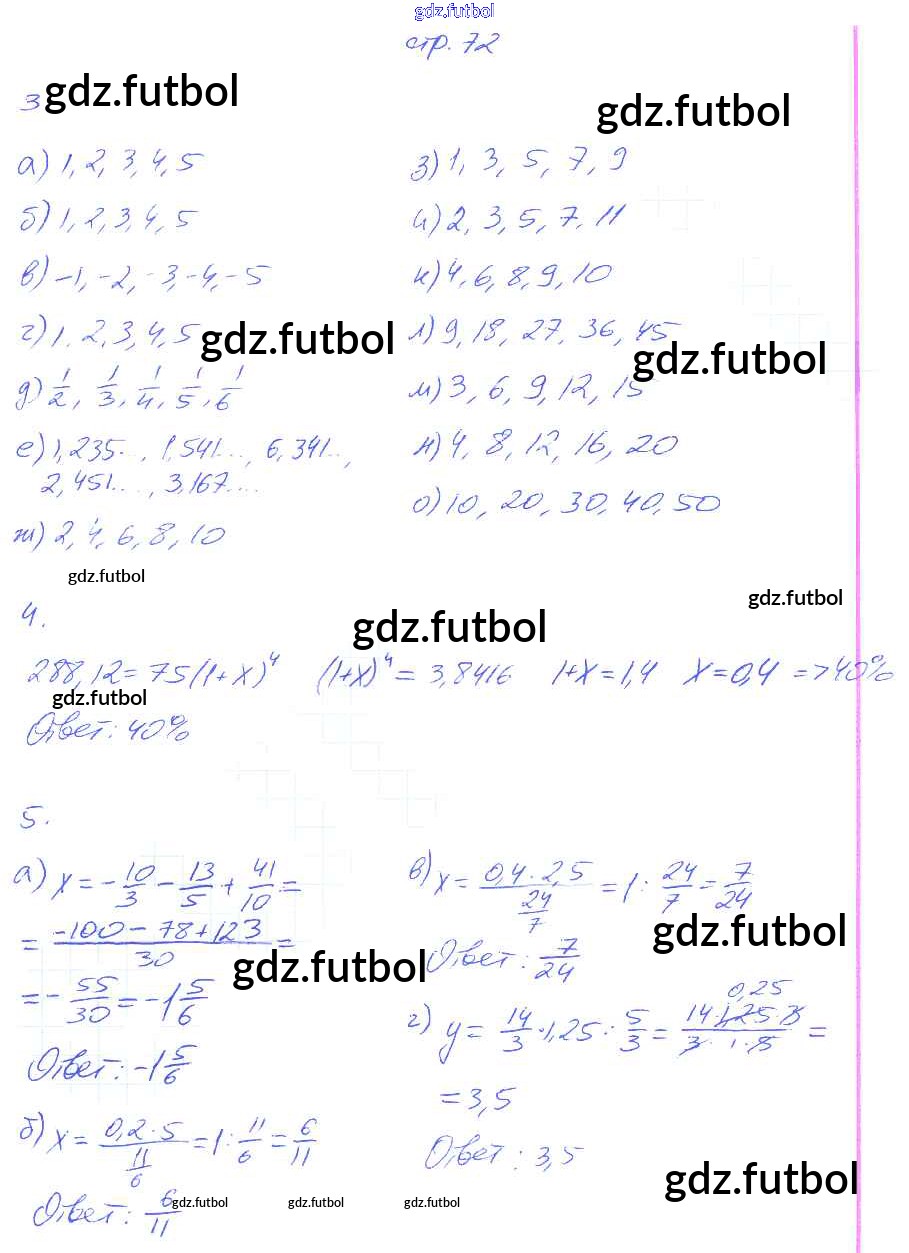 gdz.futbol
стр. 72
3 gdz.futbol
gdz.futbol
а) 1, 2, 3, 4, 5
б) 1, 2, 3, 4, 5
в) -1, -2, -3, -4, -5
г) 1, 2, 3, 4, 5
gdz.futbol
д) 1/2, 1/3, 1/4, 1/5, 1/6
е) 1,235..., 1,541..., 6,341..,
2,451..., 3,167....
ж) 2, 4, 6, 8, 10
gdz.futbol
з) 1, 3, 5, 7, 9
и) 2, 3, 5, 7, 11
к) 4, 6, 8, 9, 10
л) 9, 18, 27, 36, 45
gdz.futbol
м) 3, 6, 9, 12, 15
н) 4, 8, 12, 16, 20
о) 10, 20, 30, 40, 50
gdz.futbol
4.
gdz.futbol
288,12 = 75(1+x)^4 (1+x)^4 = 3,8416 1+x = 1,4 x = 0,4 => 40%
gdz.futbol
Ответ: 40%
5.
а) x = -10/3 - 13/5 + 41/10 =
= (-100 - 78 + 123)/30 =
gdz.futbol
= -55/30 = -1 5/6
Ответ: -1 5/6
б) x = (0,2 · 5)/(11/6) = 1 : 11/6 = 6/11
Ответ: 6/11
gdz.futbol gdz.futbol gdz.futbol
в) x = (0,4 · 2,5)/(24/7) = 1 : 24/7 = 7/24
gdz.futbol
Ответ: 7/24
0,25
г) y = 14/3 · 1,25 : 5/3 = (14 · 1,25 · 3)/(3 · 1 · 5) =
= 3,5
Ответ: 3,5
gdz.futbol